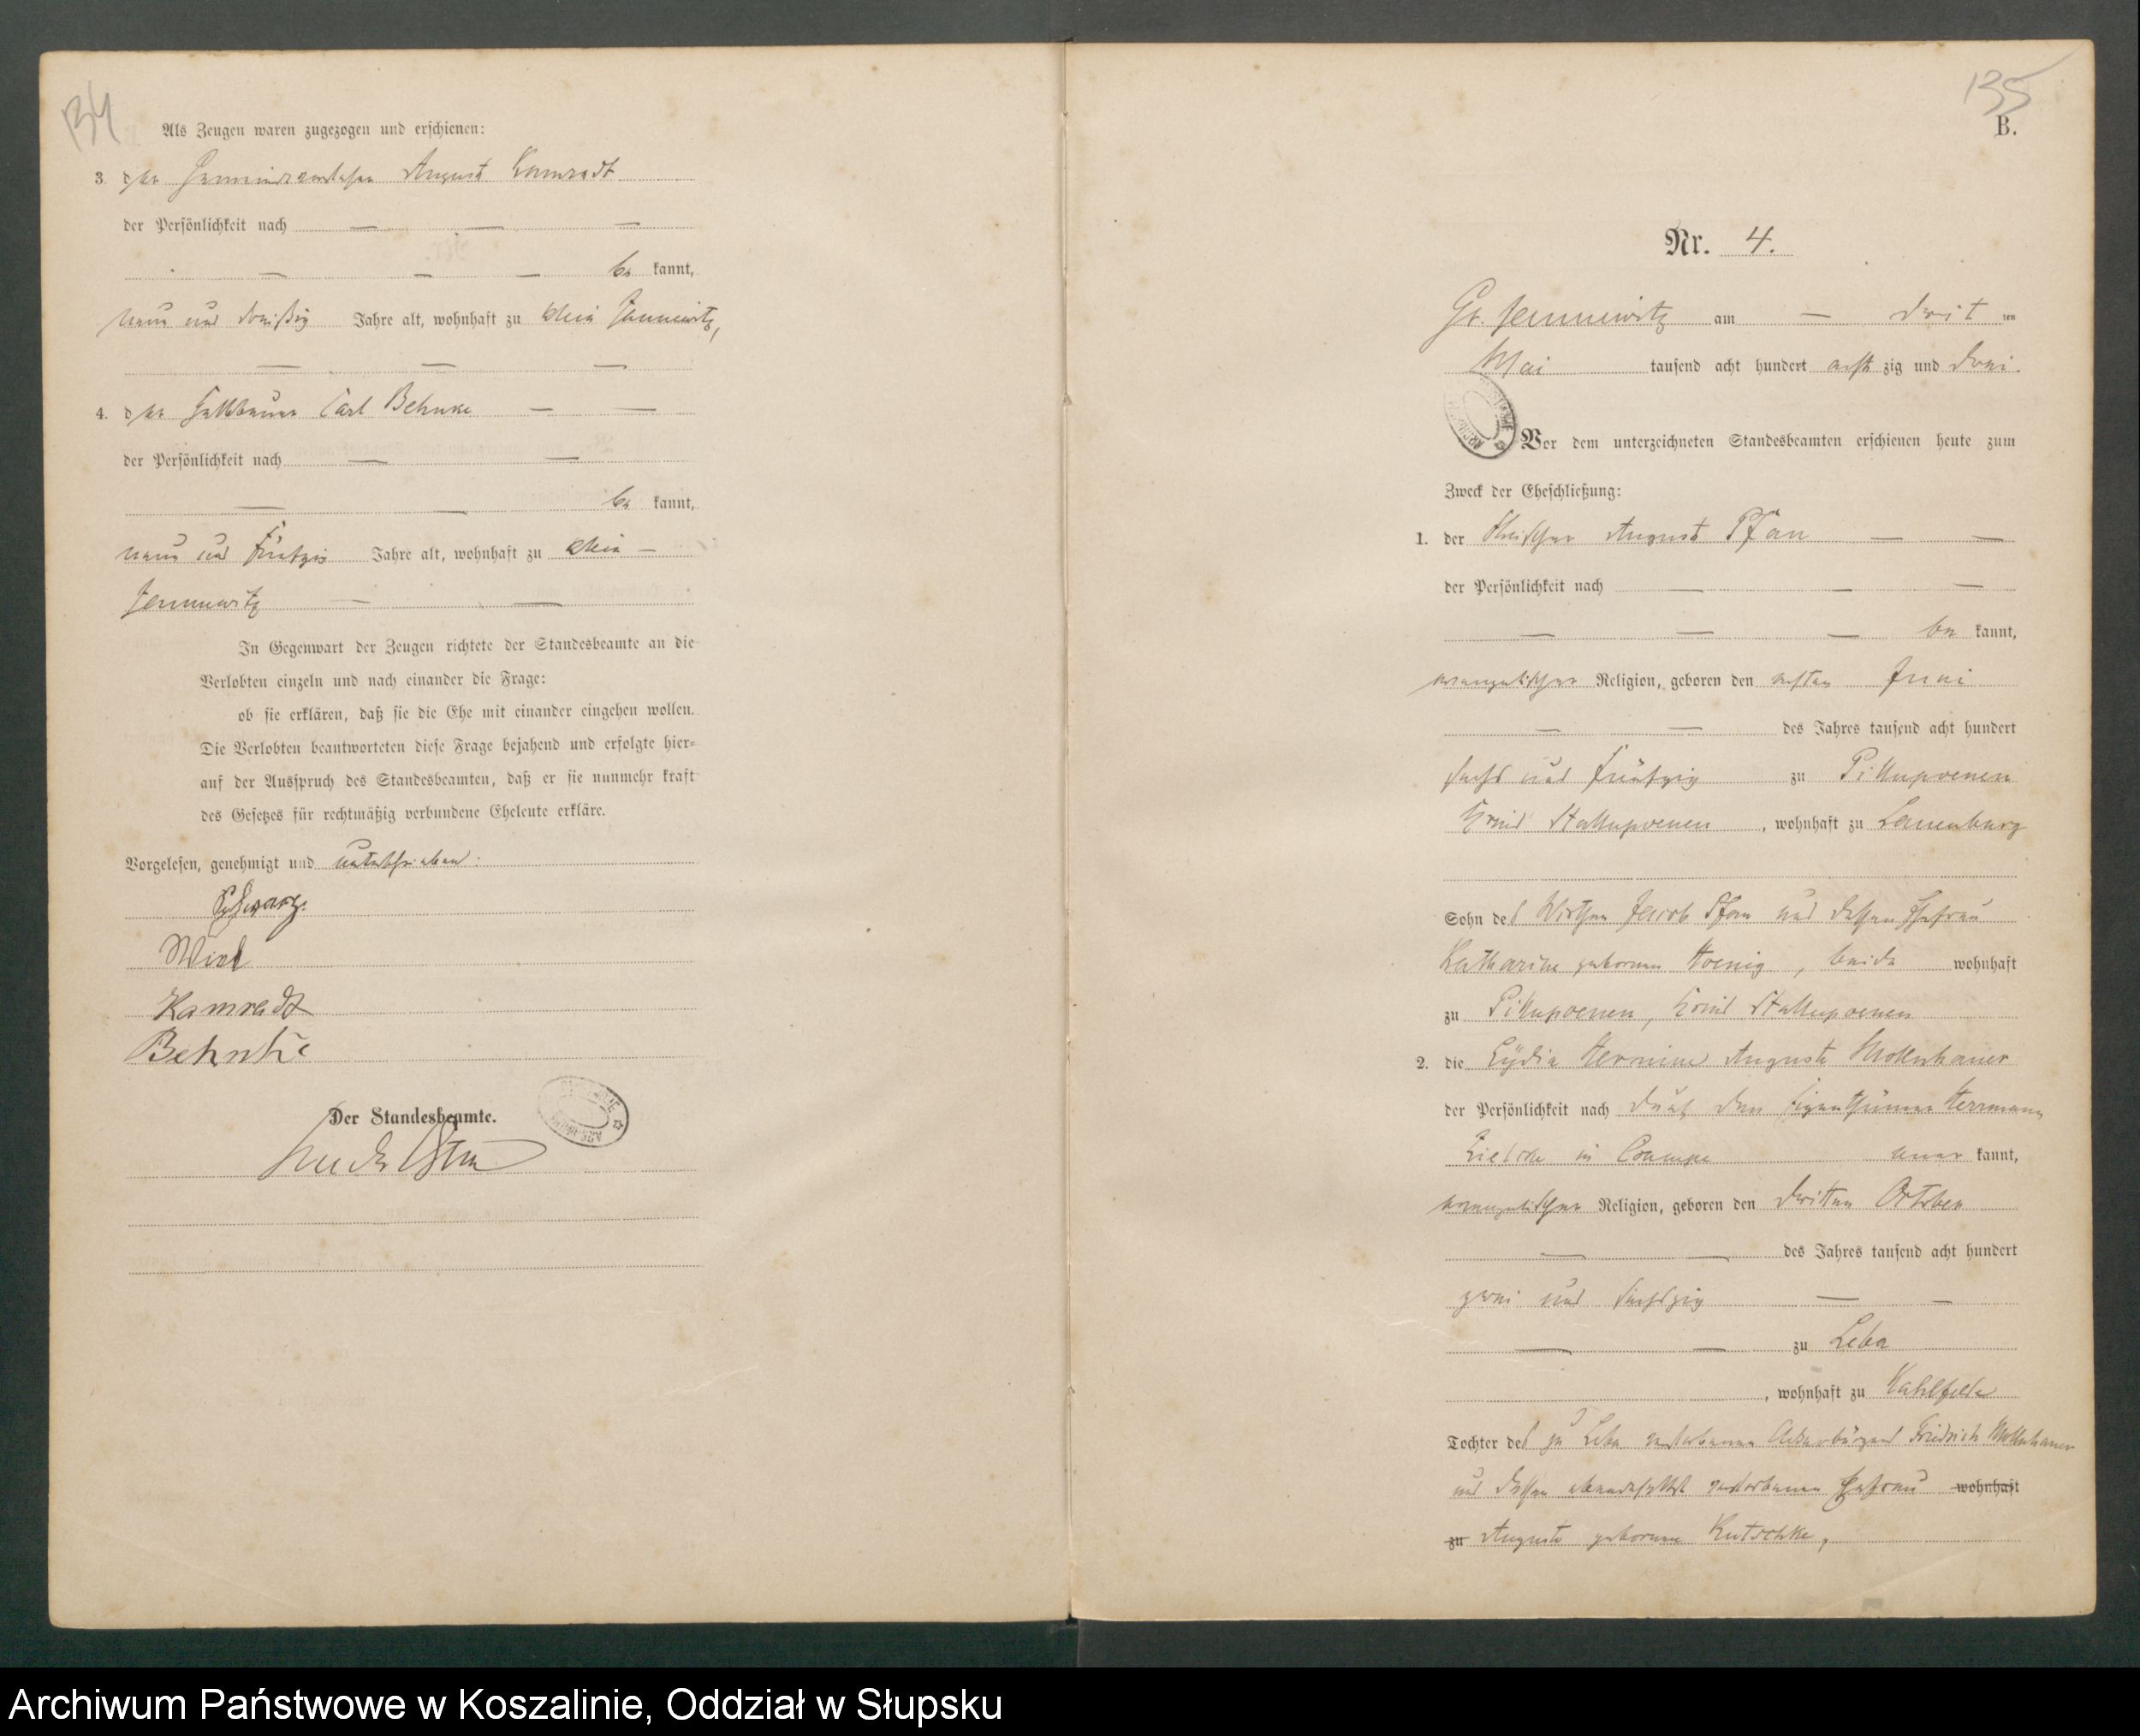 134
Als Zeugen waren zugezogen und erschienen:
3. der Gemeindevorsteher August Kamradt
der Persönlichkeit nach — — —
— — — be kannt,
neun und dreißig Jahre alt, wohnhaft zu Klein Jannewitz,
— — —
4. der Carl Behnke — —
der Persönlichkeit nach — —
— — be kannt,
neun und fünfzig Jahre alt, wohnhaft zu Klein —
Jannewitz — —
In Gegenwart der Zeugen richtete der Standesbeamte an die
Verlobten einzeln und nach einander die Frage:
ob sie erklären, daß sie die Ehe mit einander eingehen wollen.
Die Verlobten beantworteten diese Frage bejahend und erfolgte hier-
auf der Ausspruch des Standesbeamten, daß er sie nunmehr kraft
des Gesetzes für rechtmäßig verbundene Eheleute erkläre.
Vorgelesen, genehmigt und unterschrieben:
Kamradt
Behnke
Der Standesbeamte.
135
B.
Nr. 4.
Gr. Jannewitz am — drit ten
Mai tausend acht hundert acht zig und drei.
Vor dem unterzeichneten Standesbeamten erschienen heute zum
Zweck der Eheschließung:
1. der Fleischer August Pfau — —
der Persönlichkeit nach — — —
— — — be kannt,
evangelischer Religion, geboren den achten Juni
— — des Jahres tausend acht hundert
sechs und fünfzig zu Pillupoenen
Kreis Stallupoenen, wohnhaft zu Lauenburg
Sohn des Wirthen Jacob Pfau und dessen Ehefrau
Katharine geborenen Hoenig, beide wohnhaft
zu Pillupoenen, Kreis Stallupoenen
2. die Lydia Hermine Auguste Mollnhauer
der Persönlichkeit nach durch den Eigenthümer Herrmann
Zielcke in Crampe aner kannt,
evangelischer Religion, geboren den dritten October
— — des Jahres tausend acht hundert
zwei und sechszig — —
— — zu Leba
, wohnhaft zu Wahlfelde
Tochter des zu Leba verstorbenen Ackerbürgers Friedrich Mollnhauer
und dessen ebendaselbst verstorbenen Ehefrau wohnhaft
zu Auguste geborenen Kutschke,
Archiwum Państwowe w Koszalinie, Oddział w Słupsku